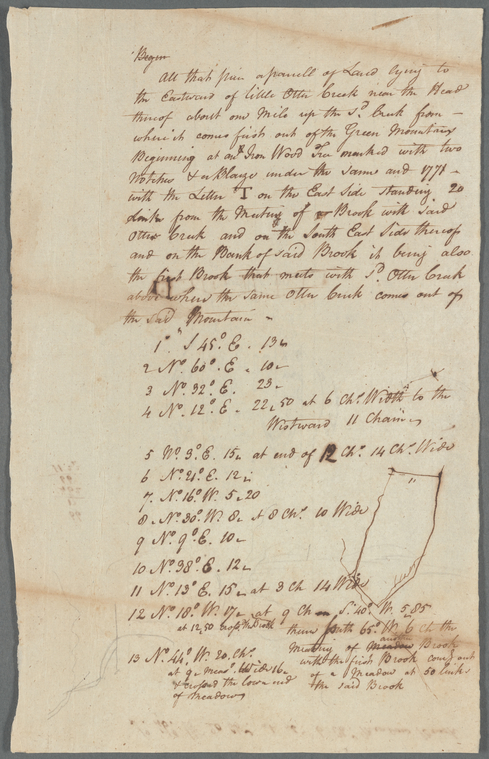 Begin
All that piece a parsell of Land lying to
the Eastward of little Otter Creek near the Head
thereof about one Mile up the Sd. Creek from
where it comes first out of the Green Mountain
Beginning at an Iron Wood Tree marked with two
Notches & a Blaze under the same and 1771
with the Letter I on the East Side Standing 20
Links from the Meeting of Brook with said
Otter Creek and on the South East Side thereof
and on the Bank of said Brook it being also
the first Brook that meets with Sd. Otter Creek
above where the same Otter Creek comes out of
the said Mountain
1 S 45° E. 13
2 No. 60° E. 10
3 No. 32° E. 23
4 No. 12° E. 22,50 at 6 Chs. Width to the
Westward 11 Chains
5 No. 3° E. 15 at end of 12 Chs. 14 Chs. Wide
6 No. 21° E. 12
7 No. 16° W. 5,20
8 No. 30° W. 8 at 8 Chs. 10 Wide
9 No. 9° E. 10
10 No. 38° E. 12
11 No. 13° E. 15 at 3 Ch 14 Wide
12 No. 18° W. 17 at 9 Ch S. 40° W. 5,85
at 12,50 Cross the Brook
then South 65° W. 6 Ch the
Meeting of Meadow and Brook
with the first Brook coming out
of a Meadow at 50 links
the said Brook
13 No. 44° W. 20 Chs.
at 9 Meaw. Wide 16
& crossed the lower end
of Meadow